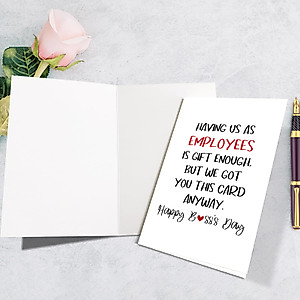 HAVING US AS
EMPLOYEES
IS GIFT ENOUGH.
BUT WE GOT
YOU THIS CARD
ANYWAY.
Happy B♥ss's Day